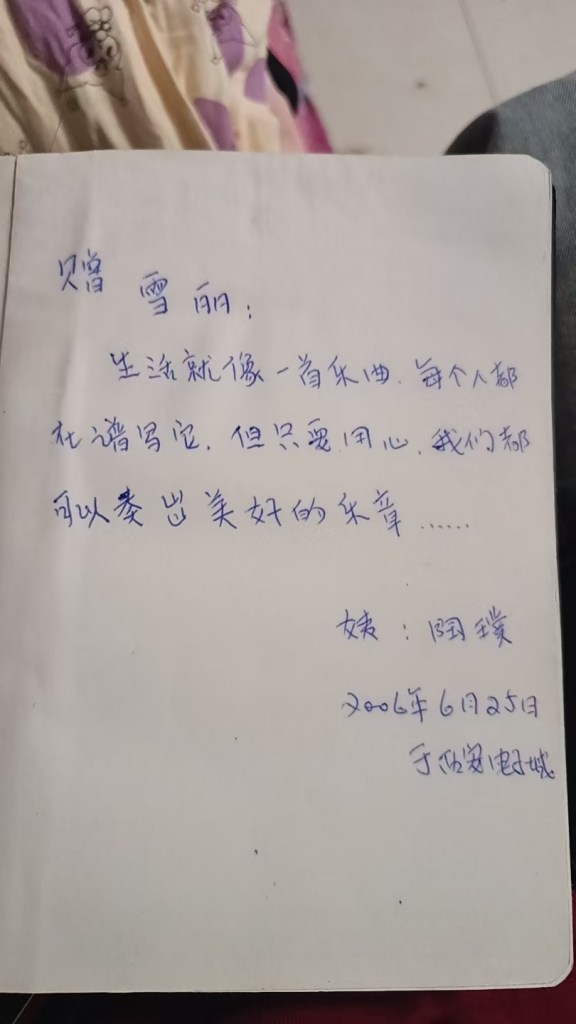 赠 雪丽：
生活就像一首乐曲，每个人都
在谱写它，但只要用心，我们都
可以奏出美好的乐章……
姨：陶璞
2006年6月25日
于西安电子城